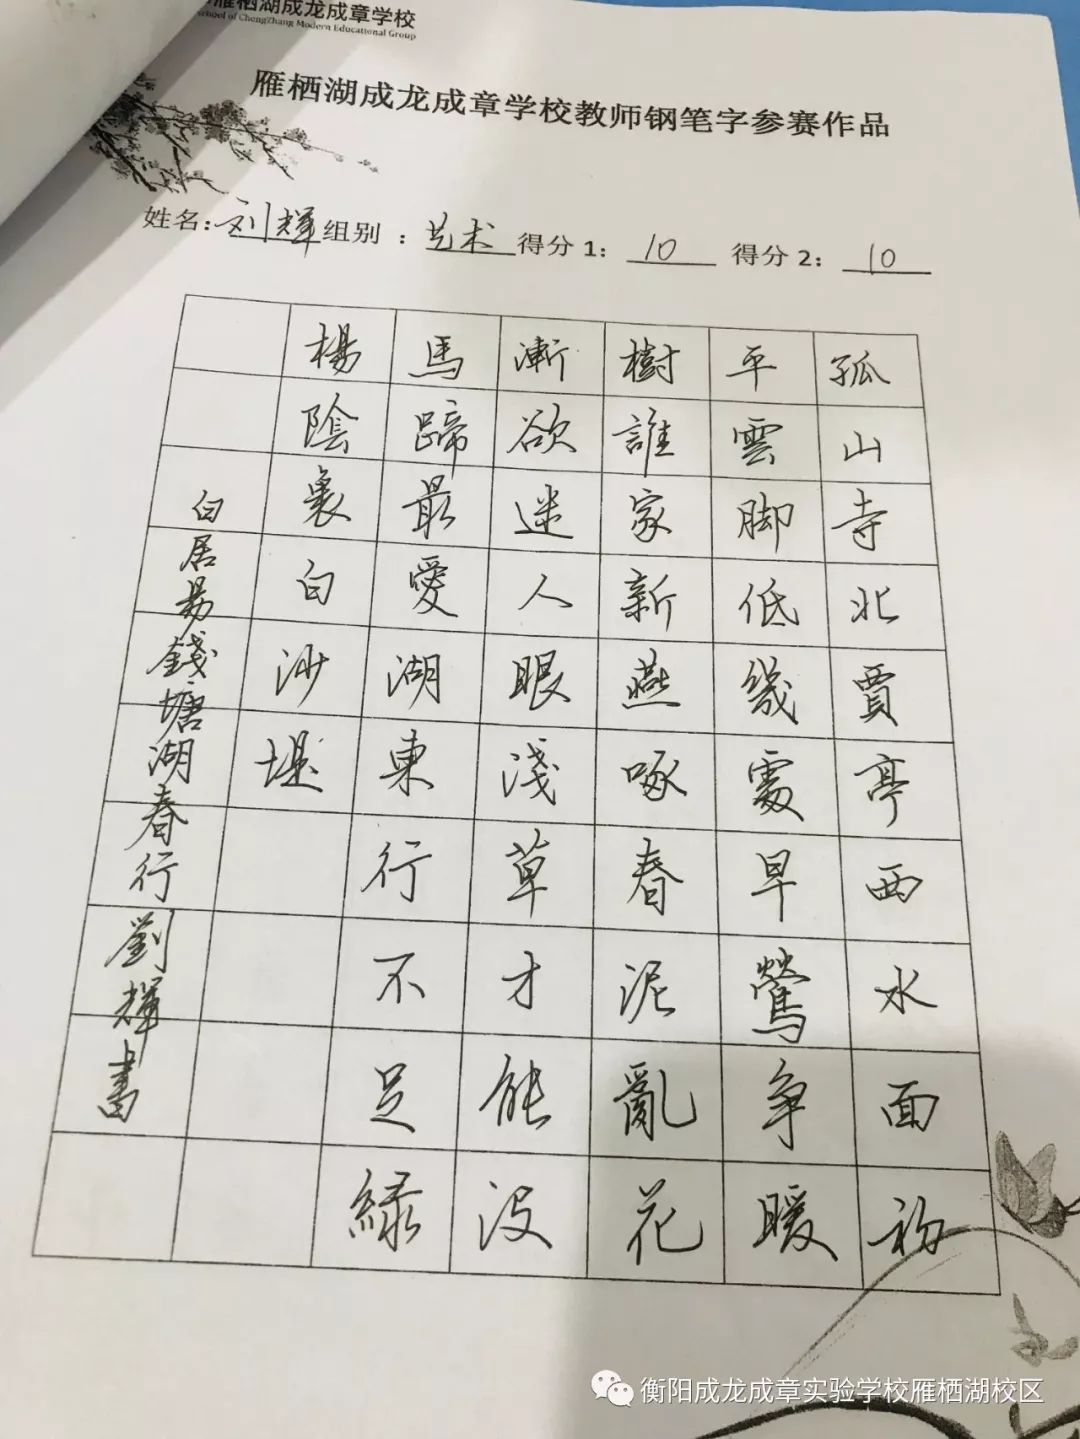 雁栖湖成龙成章学校
School of ChengZhang Modern Educational Group
雁栖湖成龙成章学校教师钢笔字参赛作品
姓名：刘辉 组别 ：艺术 得分 1： 10 得分 2： 10
孤山寺北賈亭西水面初
平雲脚低幾處早鶯争暖
樹誰家新燕啄春泥亂花
漸欲迷人眼淺草才能没
馬蹄最愛湖東行不足緑
楊陰裏白沙堤
白居易錢塘湖春行 劉輝書
衡阳成龙成章实验学校雁栖湖校区